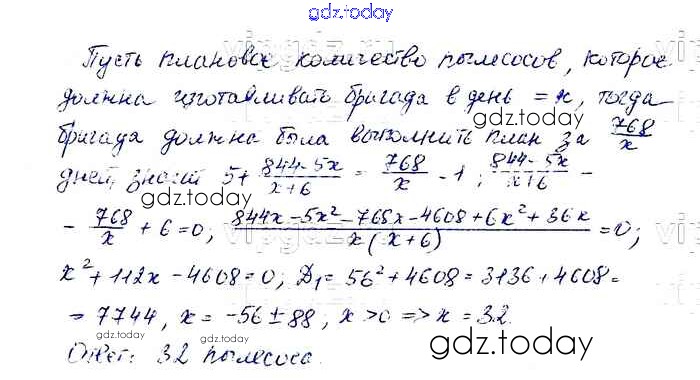 gdz.today
Пусть плановое количество пылесосов, которое
должна изготавливать бригада в день = x, тогда
бригада должна была выполнить план за 768/x
gdz.today
дней, значит 5 + (844-5x)/(x+6) = 768/x - 1; (844-5x)/(x+6) -
gdz.today
- 768/x + 6 = 0; (844x - 5x² - 768x - 4608 + 6x² + 36x)/(x(x+6)) = 0;
x² + 112x - 4608 = 0; D₁ = 56² + 4608 = 3136 + 4608 =
= 7744, x = -56 ± 88; x > 0 => x = 32.
Ответ: 32 пылесоса.
gdz.today
gdz.today